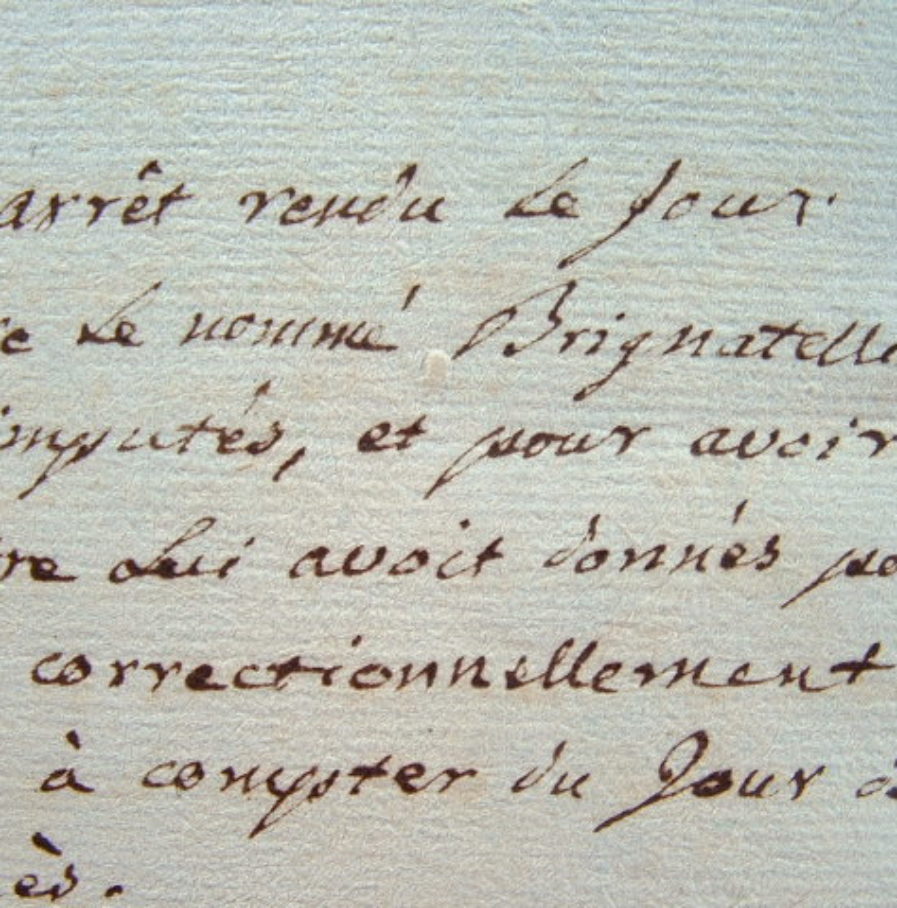 arrêt rendu Le Jour
re Le nommé Brignatelle
imputés, et pour avoir
re Lui avoit donnés po
correctionnellement
à compter du Jour d
ès.